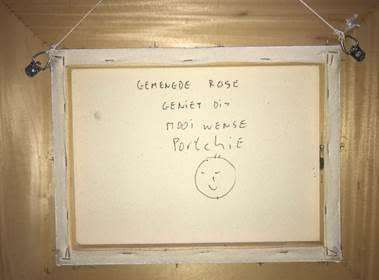 GEMENGDE ROSE
GENIET DIT
MOOI WENSE
PORtchIE